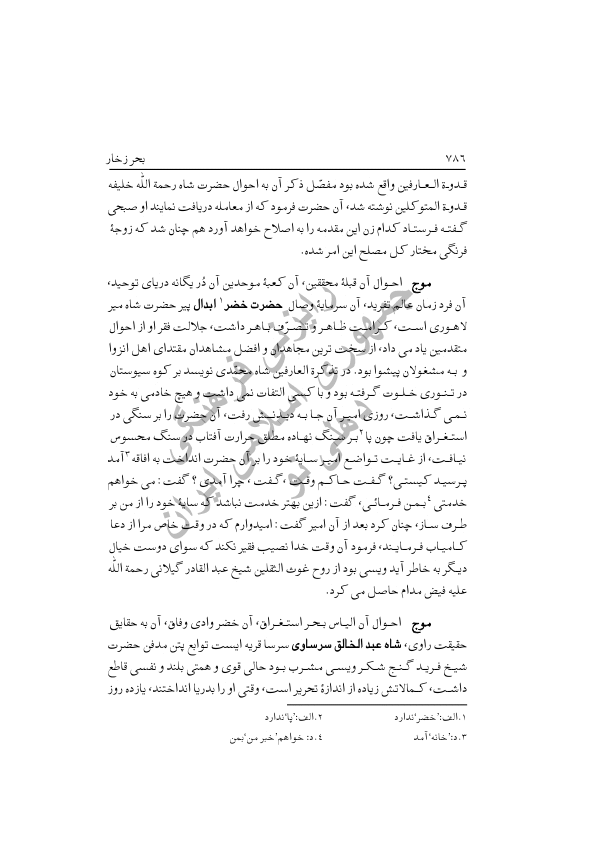 ۷۸۶
بحر زخار
قدوة العارفین واقع شده بود مفصّل ذکر آن به احوال حضرت شاه رحمة الله خلیفه
قدوة المتوکلین نوشته شد، آن حضرت فرمود که از معامله دریافت نمایند او صبحی
گفته فرستاد کدام زن این مقدمه را به اصلاح خواهد آورد هم چنان شد که زوجۀ
فرنگی مختار کل مصلح این امر شده.
موج احوال آن قبلۀ محققین، آن کعبۀ موحدین آن دُر یگانه دریای توحید،
آن فرد زمان عالم تفرید، آن سرمایۀ وصال حضرت خضر۱ ابدال پیر حضرت شاه میر
لاهوری است، کرامت ظاهر و تصرّف باهر داشت، جلالت فقر او از احوال
متقدمین یاد می داد، از سخت ترین مجاهدان و افضل مشاهدان مقتدای اهل انزوا
و به مشغولان پیشوا بود. در تذکرة العارفین شاه محمّدی نویسد بر کوه سیوستان
در تنوری خلوت گرفته بود و با کسی التفات نمی داشت و هیچ خادمی به خود
نمی گذاشت، روزی امیر آن جا به دیدنش رفت، آن حضرت را بر سنگی در
استغراق یافت چون پا۲ بر سنگ نهاده مطلق حرارت آفتاب در سنگ محسوس
نیافت، از غایت تواضع امیر سایۀ خود را بر آن حضرت انداخت به افاقه۳ آمد
پرسید کیستی؟ گفت حاکم وقت، گفت، چرا آمدی؟ گفت: می خواهم
خدمتی۴ بمن فرمائی، گفت: ازین بهتر خدمت نباشد که سایۀ خود را از من بر
طرف ساز، چنان کرد بعد از آن امیر گفت: امیدوارم که در وقت خاص مرا از دعا
کامیاب فرمایند، فرمود آن وقت خدا نصیب فقیر نکند که سوای دوست خیال
دیگر به خاطر آید ویسی بود از روح غوث الثقلین شیخ عبد القادر گیلانی رحمة الله
علیه فیض مدام حاصل می کرد.
موج احوال آن الیاس بحر استغراق، آن خضر وادی وفاق، آن به حقایق
حقیقت راوی، شاه عبد الخالق سرساوی سرسا قریه ایست توابع پتن مدفن حضرت
شیخ فرید گنج شکر ویسی مشرب بود حالی قوی و همتی بلند و نفسی قاطع
داشت، کمالاتش زیاده از اندازۀ تحریر است، وقتی او را بدریا انداختند، یازده روز
۱.الف:'خضر' ندارد
۲.الف:'پا' ندارد
۳.د:'خانه' آمد
۴.د: خواهم 'خبر من' بمن
جمهوری اسلامی ایران
رایزنی فرهنگی
دهلی نو